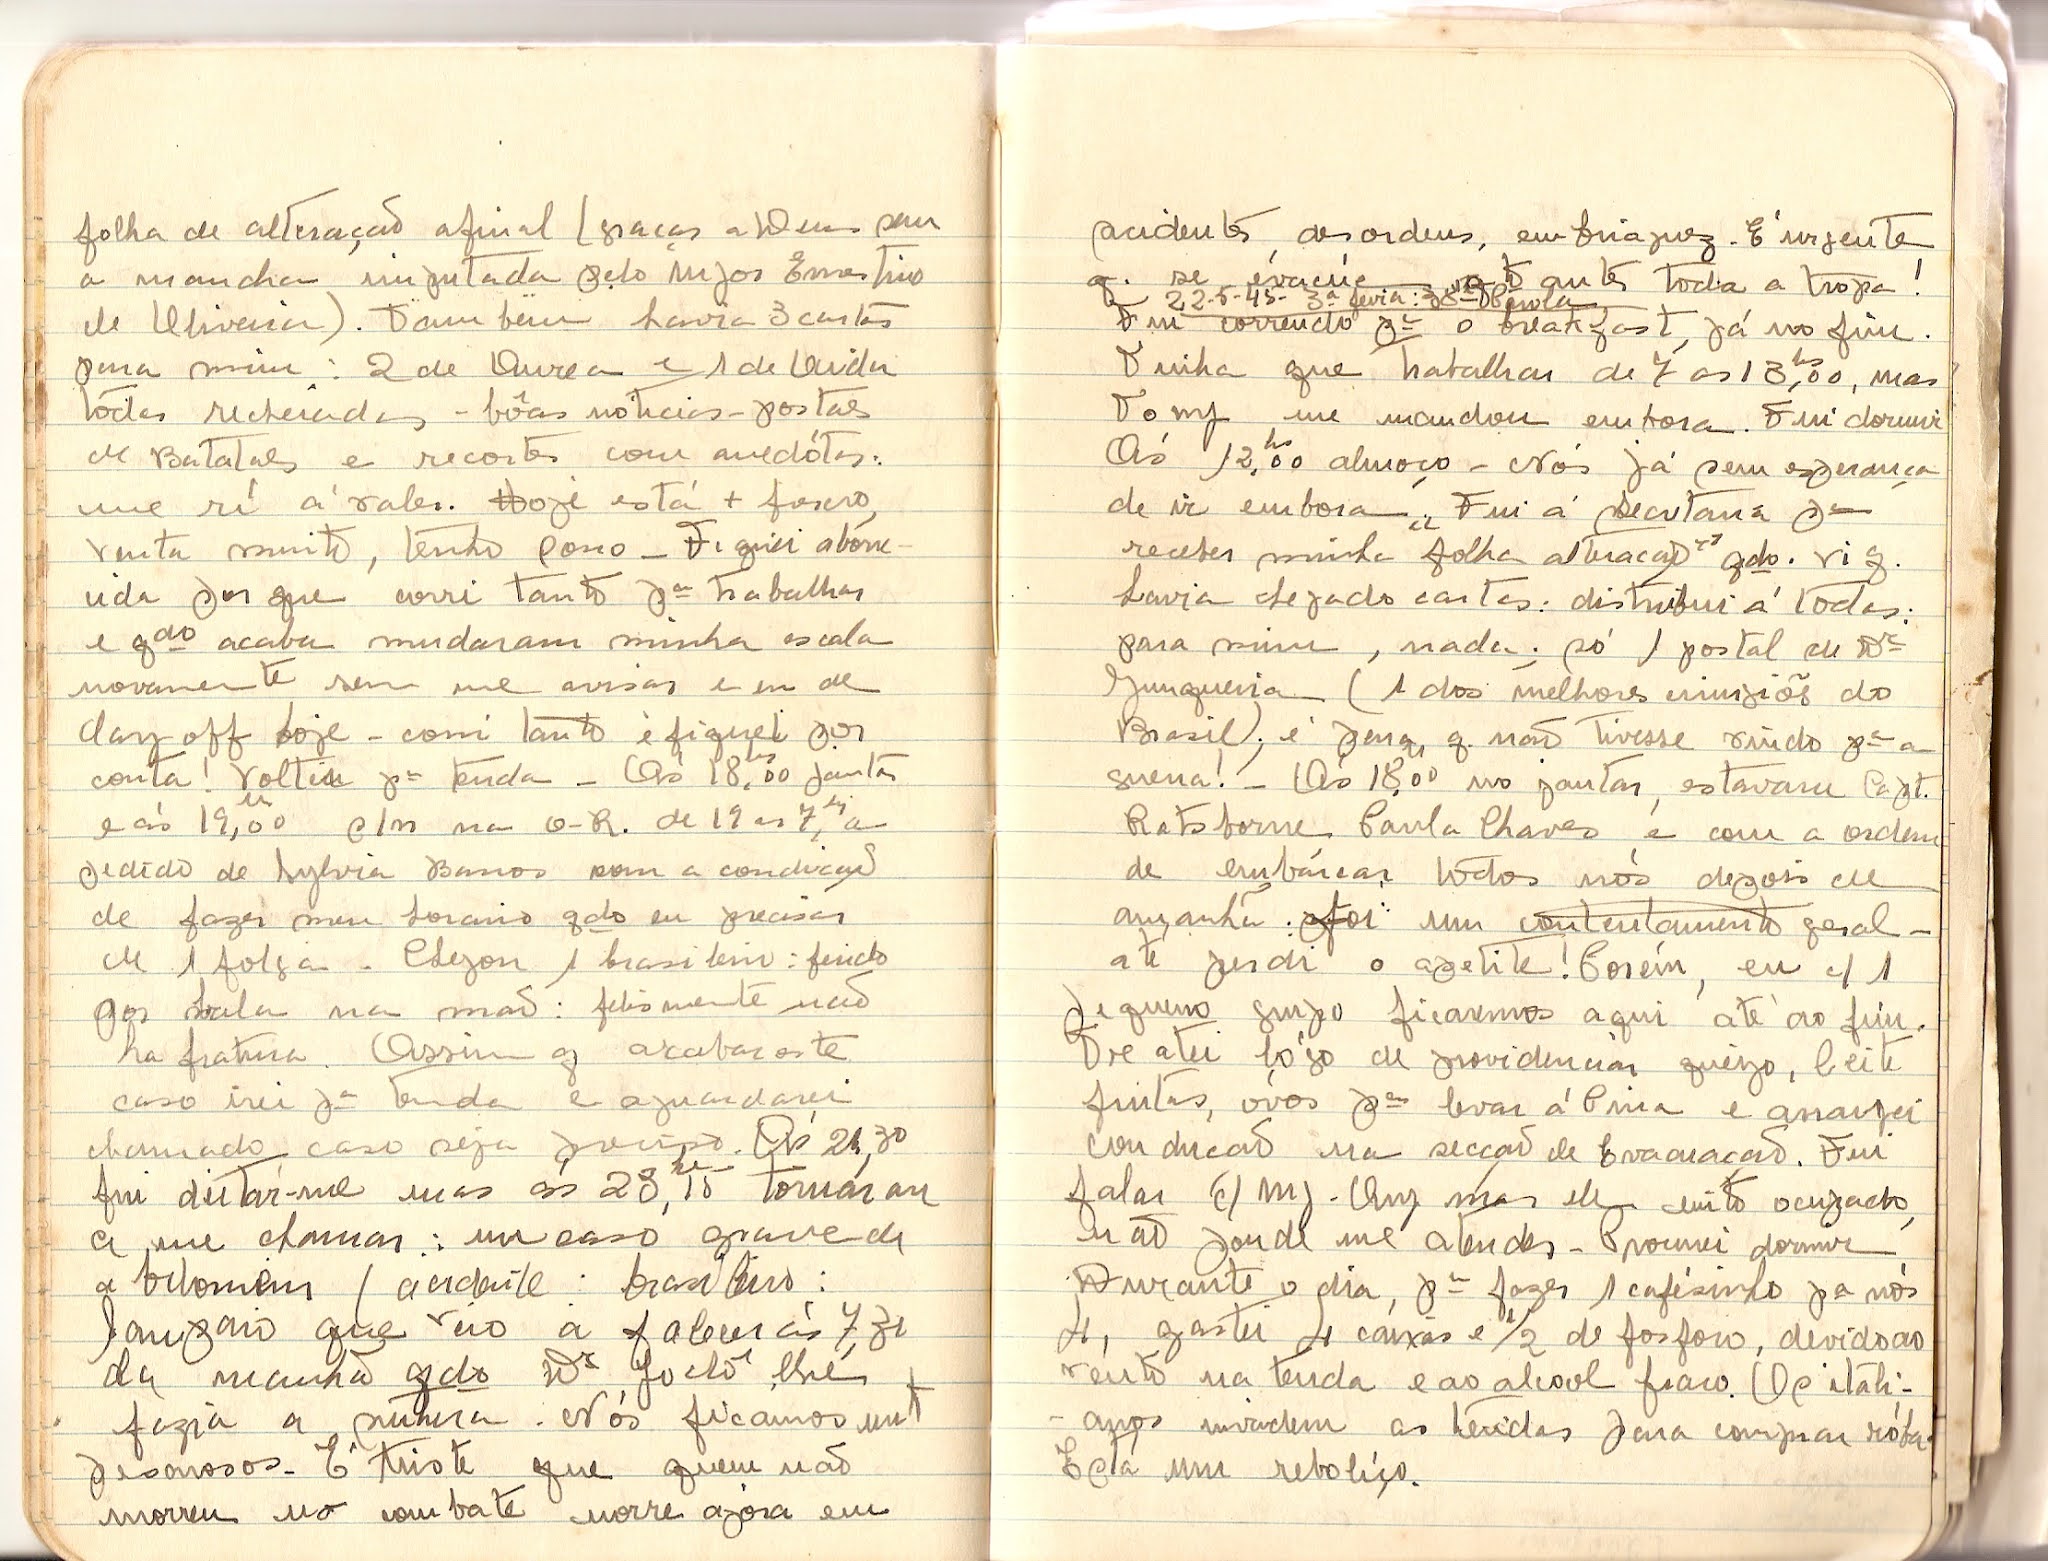 folha de alteração afinal (graças a Deus sem
a mancha imputada pelo Major Ernestino
de Oliveira). Também havia 3 cartas
para mim: 2 de Aurea e 1 de
todas recheiadas - bôas noticias - postaes
de Batataes e recortes com anedótas.
me rí á valer. Hoje está + fresco,
venta muito, tenho sono - Fiquei aborre-
cida por que corri tanto pª trabalhar
e qdo acaba mudaram minha escala
novamente sem me avisar e eu de
day off hoje - corri tanto e fiquei por
conta! Voltei pª tenda - Ás 18,00 hs jantar
e ás 19,00 na O-R. de 19 as 7, a
pedido de Sylvia Barros com a condição
de fazer meu horario qdo eu precisar
de 1 folga - Chegou 1 brasileiro: ferido
por bala na mão: felismente não
ha fratura. Assim q acabar este
caso irei pª tenda e aguardarei
chamado caso seja preciso. Ás 21,30
fui deitar-me mas ás 23,15 tornaram
a me chamar: um caso grave de
abdomem (acidente: brasileiro:
que veio a falecer ás 7,30
da manhã qdo Dr lhe
fazia a sutura. Nós ficamos mt
pesarosos - É triste que quem não
morreu no combate morre agora em
acidentes, desordens, embriaguez. É urgente
q. se evacúe qto antes toda a tropa!
22-5-45- 3ª feria:
Fui correndo pª o breakfast, já no fim.
Tinha que trabalhar de 7 as 13,00 hs, mas
Tomy me mandou embora. Fui dormir
Ás 12,00 hs almoço - Nós já sem esperança
de ir embora, Fui á Secretaria pª
receber minha folha alteração qdo. vi q.
havia chegado cartas: distribui á todas:
para mim, nada; só 1 postal de Dr
Junqueira (1 dos melhores cirurgiões do
Brasil); é pena q. não tivesse vindo pª a
guerra! - Ás 18,00 no jantar, estavam Capt.
Paula Chaves e com a ordem
de embarcar todos nós depois de
amanhã: foi um contentamento geral -
até perdi o apetite! Porém, eu c/ 1
pequeno grupo ficaremos aqui até ao fim.
Tratei lógo de providenciar queijo, leite
frutas, óvos pª levar á e arranjei
condução na secção de Evacuação. Fui
falar c/ Mj. mas ele mito ocupado,
não poude me atender - Procurei dormir
Durante o dia, pª fazer 1 cafésinho pª nós
4, gastei 4 caixas e 1/2 de fosforo, devido ao
vento na tenda e ao alcool fraco. Os itali-
- anos invadem as tendas para comprar
Está um reboliço.